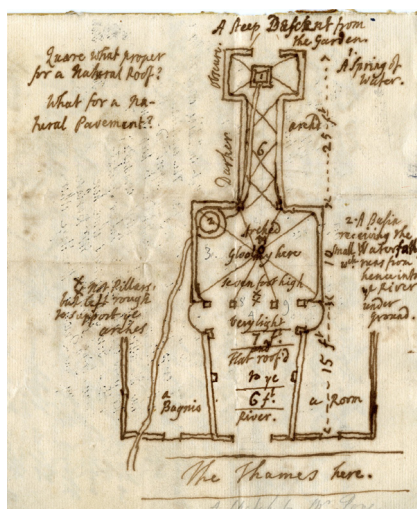 A Steep Descent from
the Garden.
Quære What proper
for a Natural Roof?
What for a Na-
tural Pavement?
1. A Spring of
Water.
Obscure.
Darker
archd
1
6
25 ft
2
Arched
Gloomy here
Seven foot high
3
10
2. A Basin
receiving the
small Waterfall
wch runs from
hence into
ye River
under
ground.
not Pillars,
but left rough
to support ye
arches
8
9
Very light
7 ft
flat roof'd
15 ft
to ye
6 ft
River.
a
Bagnio
a Room
The Thames here.